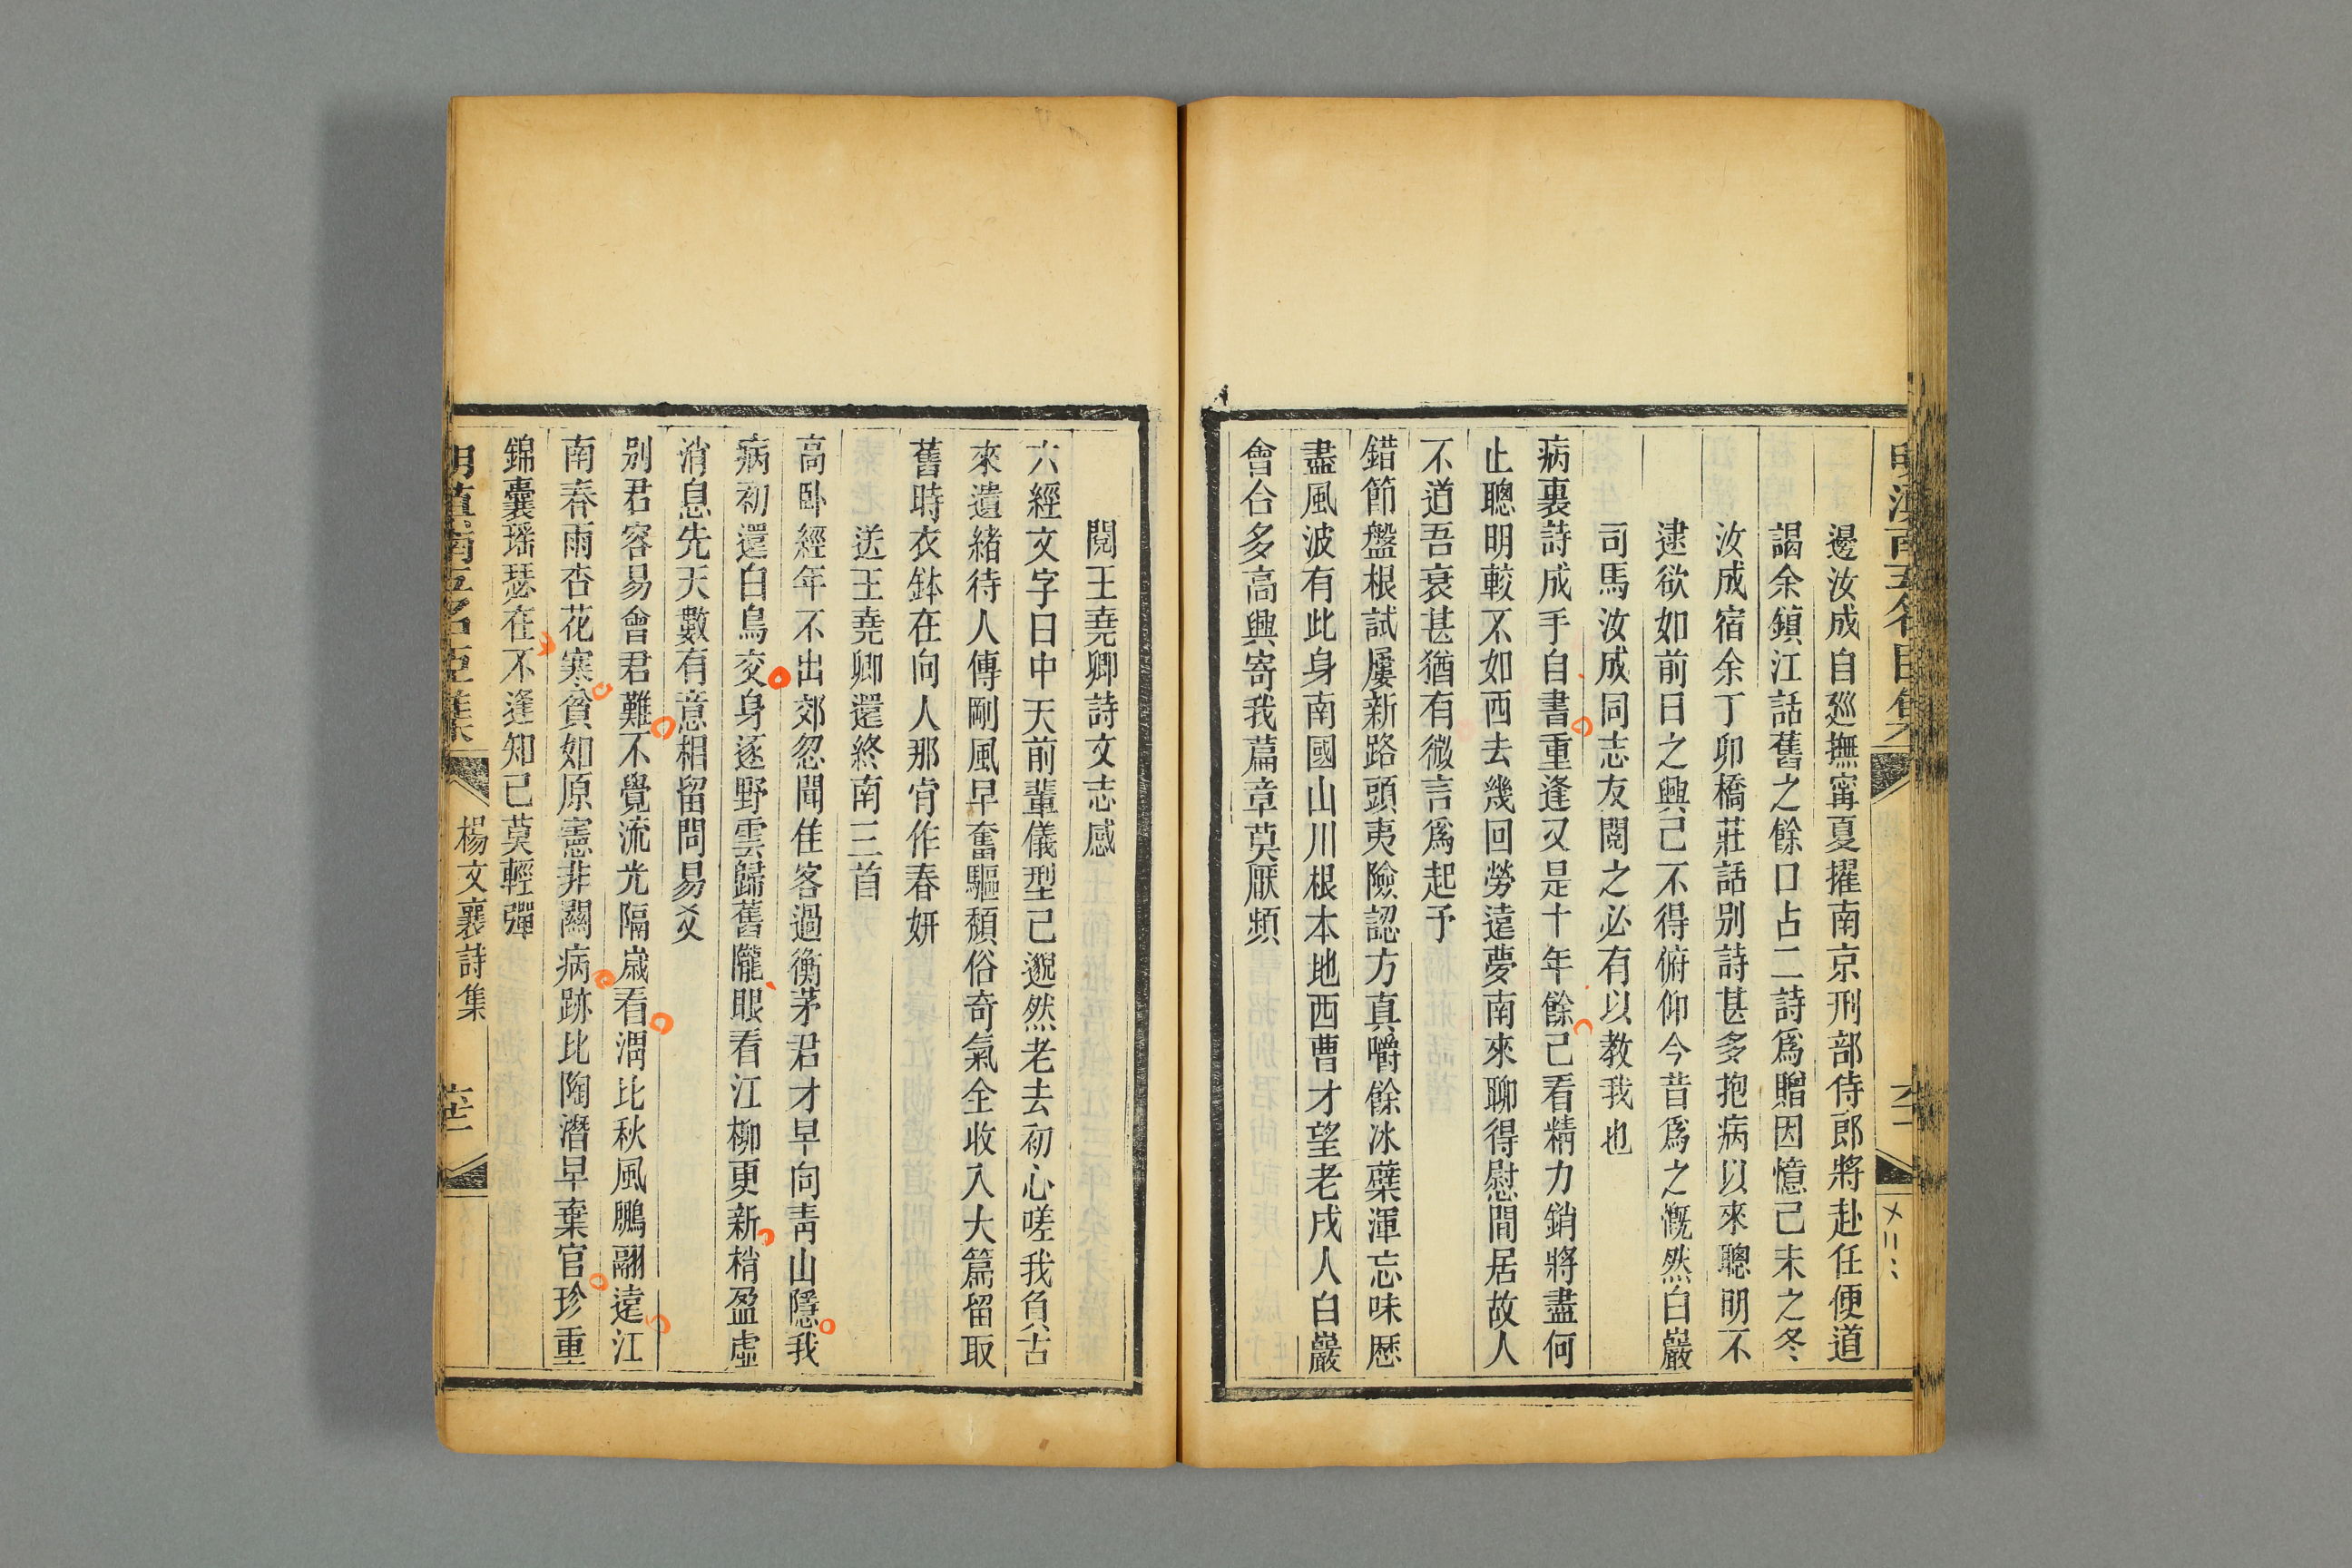 邊汝成自廵撫甯夏擢南京刑部侍郎將赴任便道
謁余鎮江話舊之餘口占二詩爲贈因憶己未之冬
汝成宿余丁卯橋莊話别詩甚多抱病以來聰明不
逮欲如前日之興己不得俯仰今昔爲之慨然白巖
司馬汝成同志友閱之必有以教我也
病裏詩成手自書重逢又是十年餘己看精力銷將盡何
止聰明較不如西去幾回勞遠夢南來聊得慰閒居故人
不道吾衰甚猶有微言爲起予
錯節盤根試屢新路頭夷險認方真嚼餘冰蘗渾忘味歷
盡風波有此身南國山川根本地西曹才望老成人白巖
會合多高興寄我篇章莫厭頻
閱王堯卿詩文志感
六經文字日中天前輩儀型己邈然老去初心嗟我負古
來遺緒待人傳剛風早奮驅頹俗奇氣全收入大篇留取
舊時衣鉢在向人那肯作春妍
送王堯卿還終南三首
高臥經年不出郊忽聞佳客過衡茅君才早向青山隱我
病初還白鳥交身逐野雲歸舊隴眼看江柳更新梢盈虛
消息先天數有意相留問易爻
别君容易會君難不覺流光隔歲看渭北秋風鵬翮遠江
南春雨杏花寒貧如原憲非關病跡比陶潛早棄官珍重
錦囊瑶瑟在不逢知己莫輕彈
楊文襄詩集